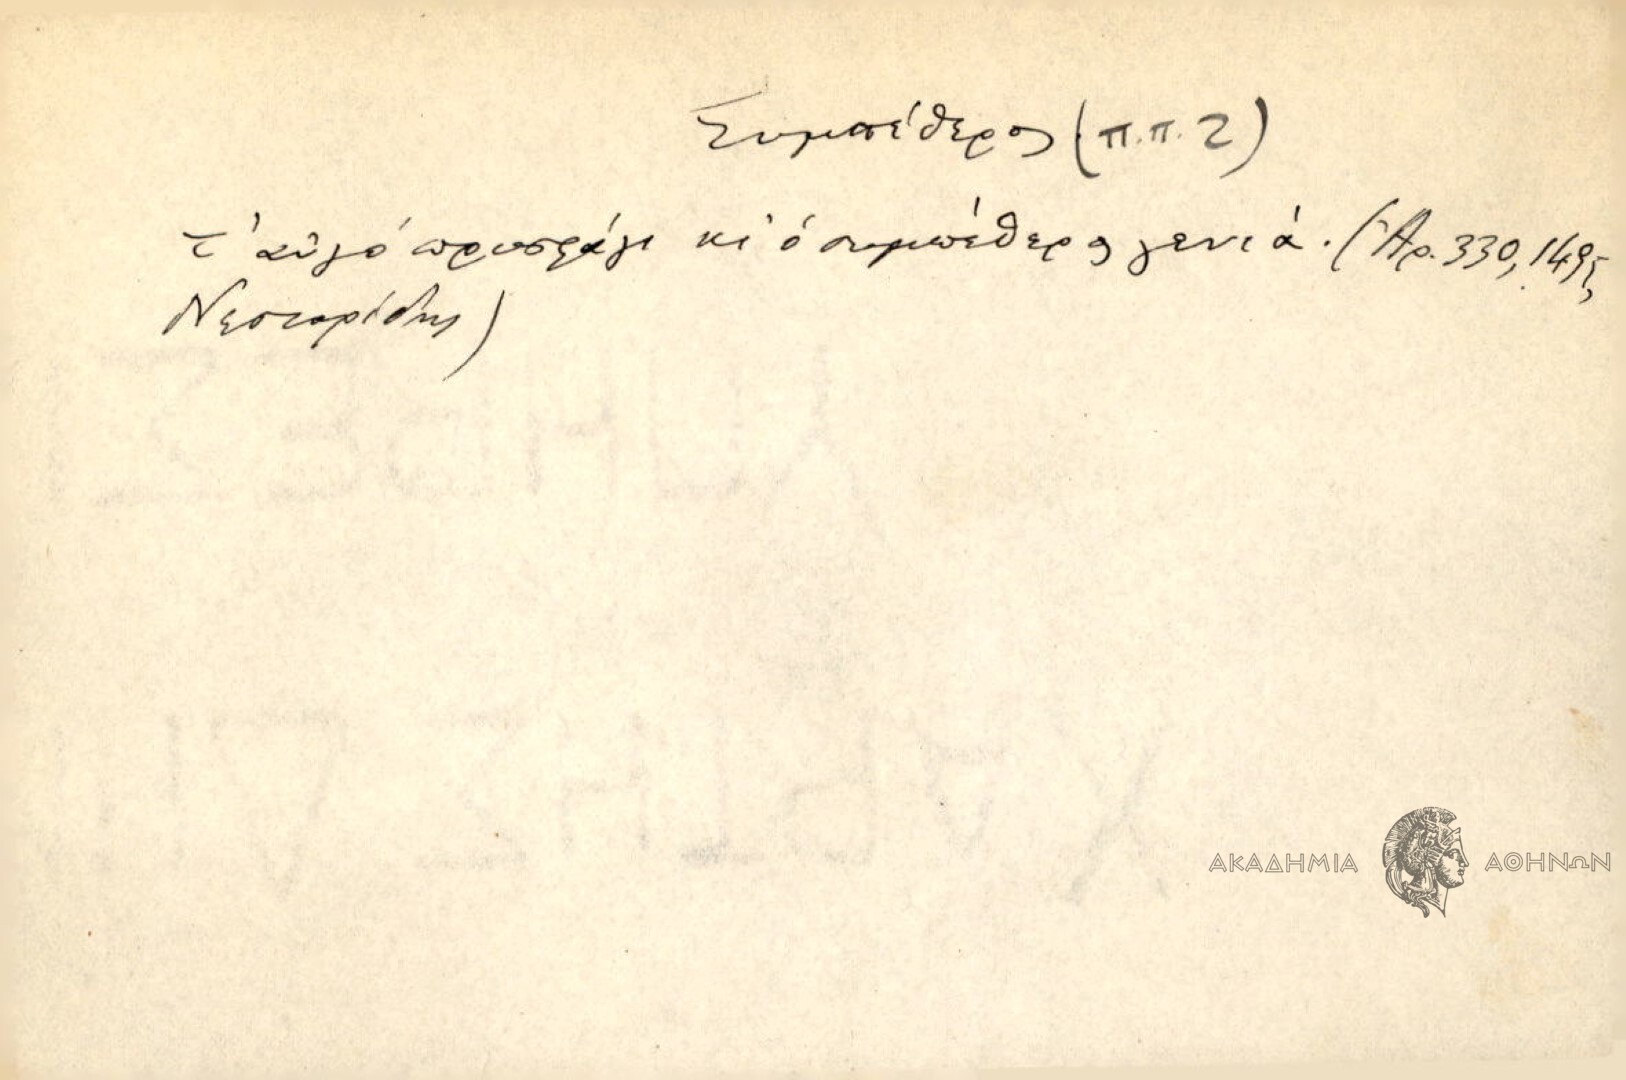 Συμπέθερος (π.π. 2)
τ' αὐγό προσφάγι κι' ὁ συμπέθερος γενιά. (Ἀρ. 330, 149
Νεστορίδης)
ΑΚΑΔΗΜΙΑ ΑΘΗΝΩΝ